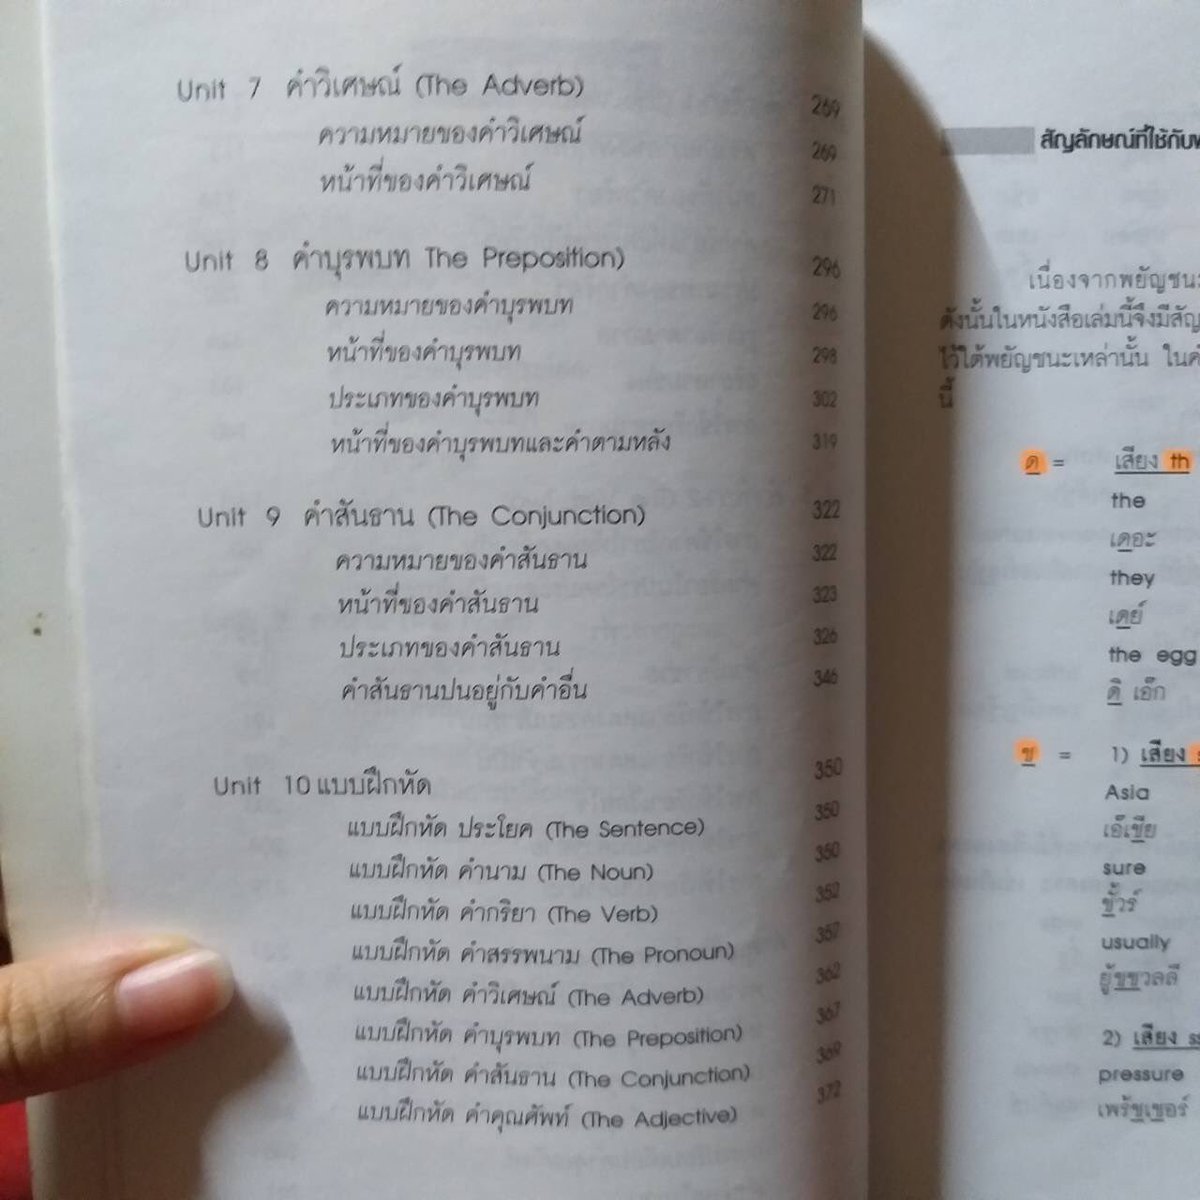 Unit 7 คำวิเศษณ์ (The Adverb) 269
ความหมายของคำวิเศษณ์ 269
หน้าที่ของคำวิเศษณ์ 271
Unit 8 คำบุรพบท The Preposition) 296
ความหมายของคำบุรพบท 296
หน้าที่ของคำบุรพบท 298
ประเภทของคำบุรพบท 302
หน้าที่ของคำบุรพบทและคำตามหลัง 319
Unit 9 คำสันธาน (The Conjunction) 322
ความหมายของคำสันธาน 322
หน้าที่ของคำสันธาน 323
ประเภทของคำสันธาน 326
คำสันธานปนอยู่กับคำอื่น 346
Unit 10 แบบฝึกหัด 350
แบบฝึกหัด ประโยค (The Sentence) 350
แบบฝึกหัด คำนาม (The Noun) 350
แบบฝึกหัด คำกริยา (The Verb) 352
แบบฝึกหัด คำสรรพนาม (The Pronoun) 357
แบบฝึกหัด คำวิเศษณ์ (The Adverb) 362
แบบฝึกหัด คำบุรพบท (The Preposition) 367
แบบฝึกหัด คำสันธาน (The Conjunction) 369
แบบฝึกหัด คำคุณศัพท์ (The Adjective) 372
สัญลักษณ์ที่ใช้กับ
เนื่องจากพยัญชนะ
ดังนั้นในหนังสือเล่มนี้จึงมี
ไว้ใต้พยัญชนะเหล่านั้น ใน
นี้
ด = เสียง th
the
เดอะ
they
เดย์
the egg
ดิ เอ๊ก
ช = 1) เสียง
Asia
เอ๊เชีย
sure
ชั้วร์
usually
ยู้ชชวลลี
2) เสียง ss
pressure
เพร้ชเชอร์